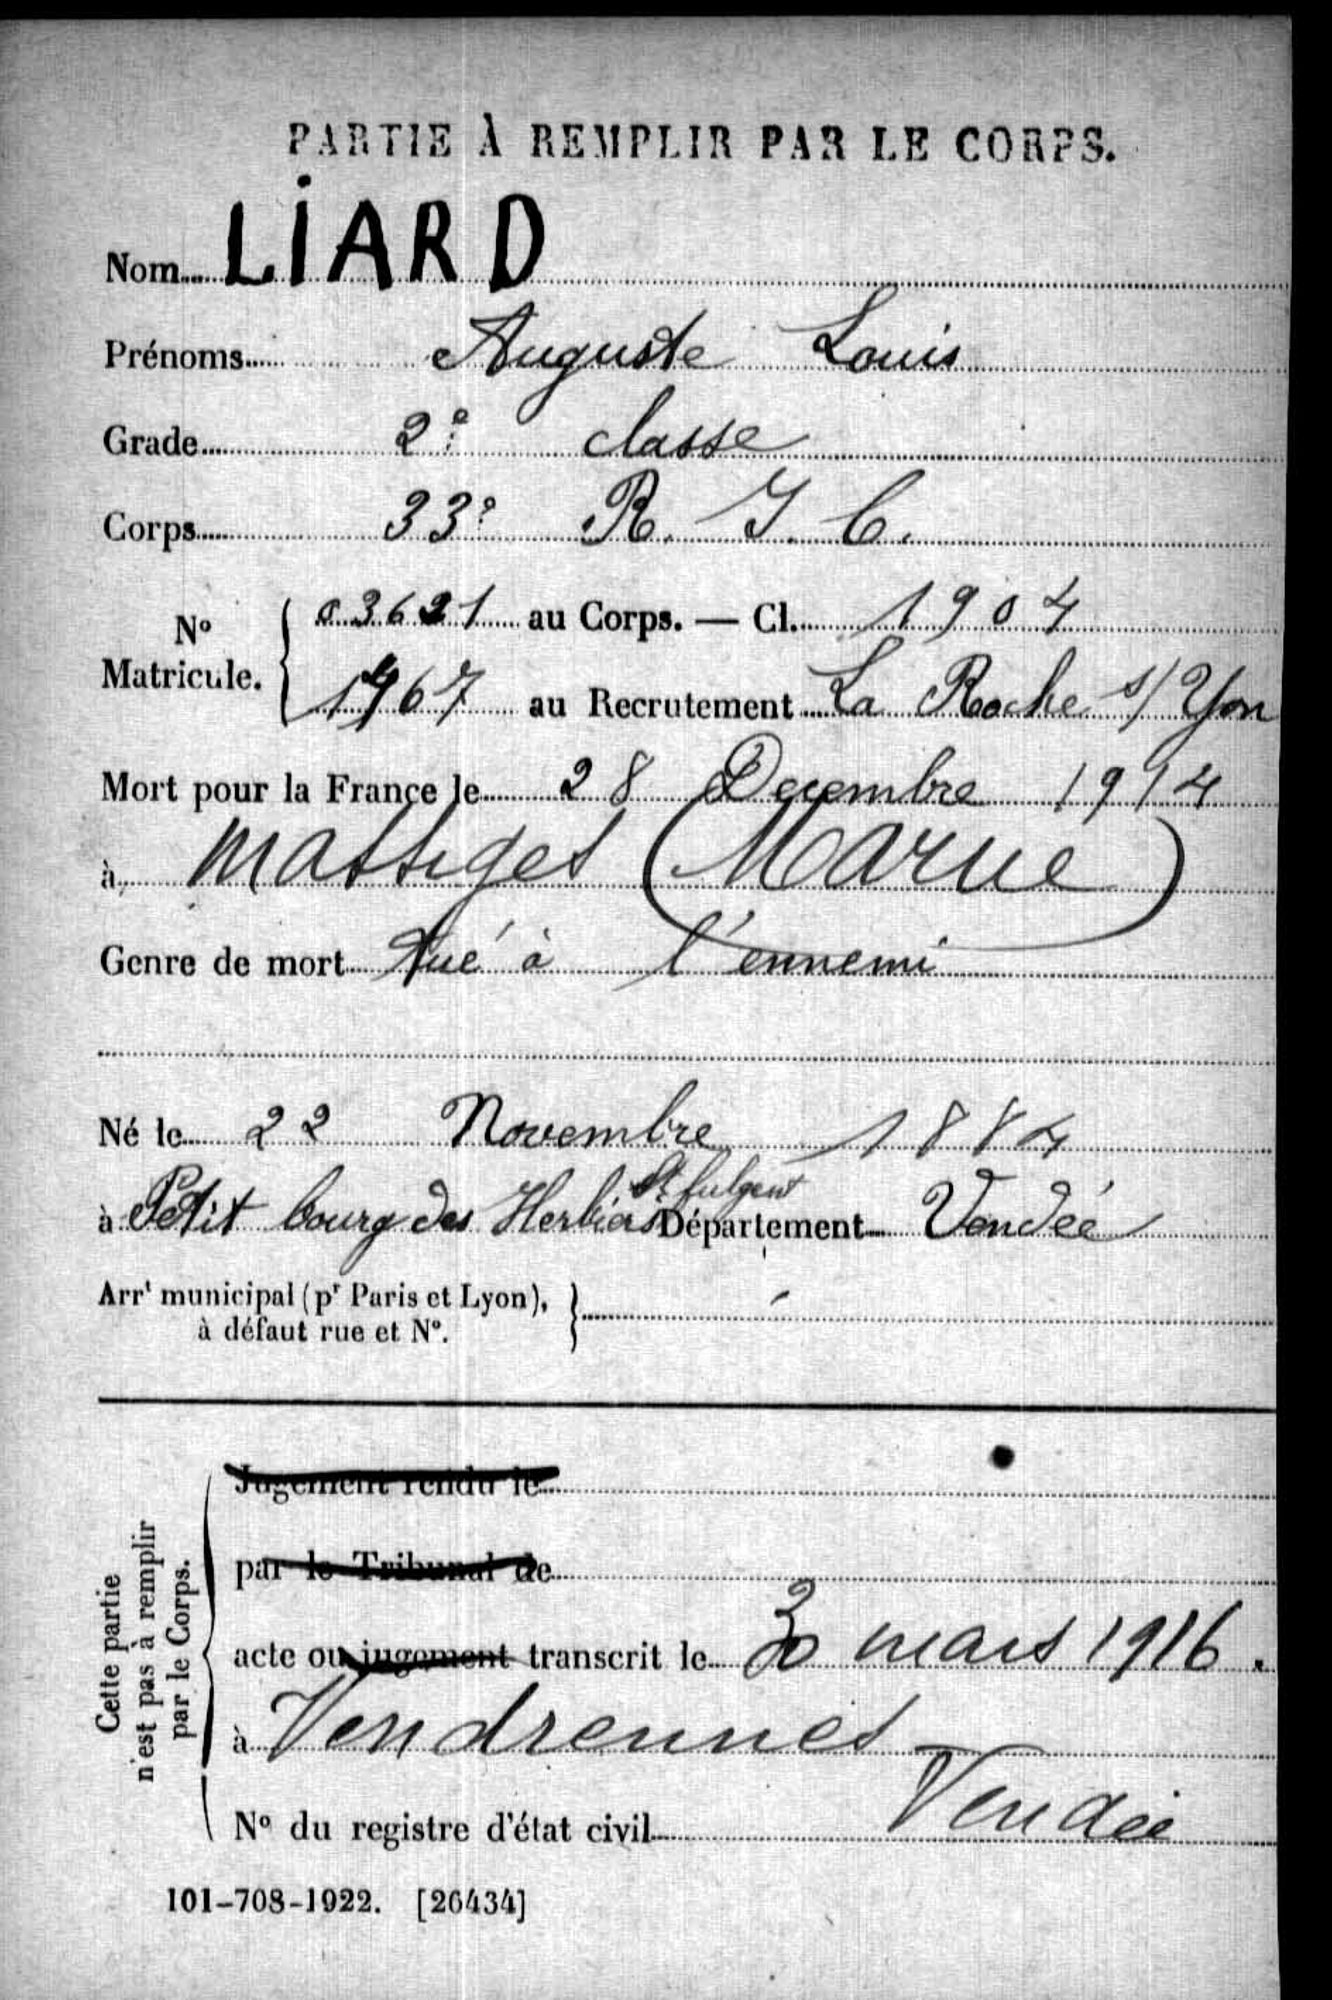 PARTIE À REMPLIR PAR LE CORPS.
Nom LIARD
Prénoms Auguste Louis
Grade 2e classe
Corps 33e R. I. C.
No Matricule. 03621 au Corps. — Cl. 1904
1967 au Recrutement La Roche s/ Yon
Mort pour la France le 28 Decembre 1914
à Massiges (Marne)
Genre de mort Tué à l'ennemi
Né le 22 Novembre 1884
St fulgent
à Petit bourg des Herbiers Département Vendée
Arrt municipal (pr Paris et Lyon),
à défaut rue et No. -
Cette partie
n'est pas à remplir
par le Corps.
Jugement rendu le
par le Tribunal de
acte ou jugement transcrit le 30 mars 1916.
à Vendrennes
Vendée
No du registre d'état civil
101-708-1922. [26434]